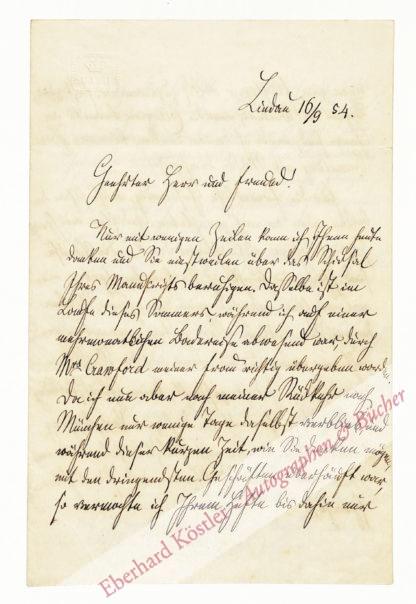 Lindau 16/9 54.
Geehrter Herr und Freund!
Nur mit wenigen Zeilen kann ich Ihnen heute
danken und Sie einstweilen über das Schicksal
Ihres Manuscripts beruhigen. Dasselbe ist im
Laufe dieses Sommers, während ich auf einer
mehrmonatlichen Badereise abwesend war durch
Mrs Crawford meiner Frau richtig übergeben worden.
Da ich nun aber nach meiner Rückkehr nach
München nur wenige Tage daselbst verblieb und
während dieser kurzen Zeit, wie Sie denken mögen,
mit den dringendsten Geschäften überhäuft war,
so vermochte ich Ihrem Hefte bis dahin nur
Eberhard Köstler Autographen & Bücher